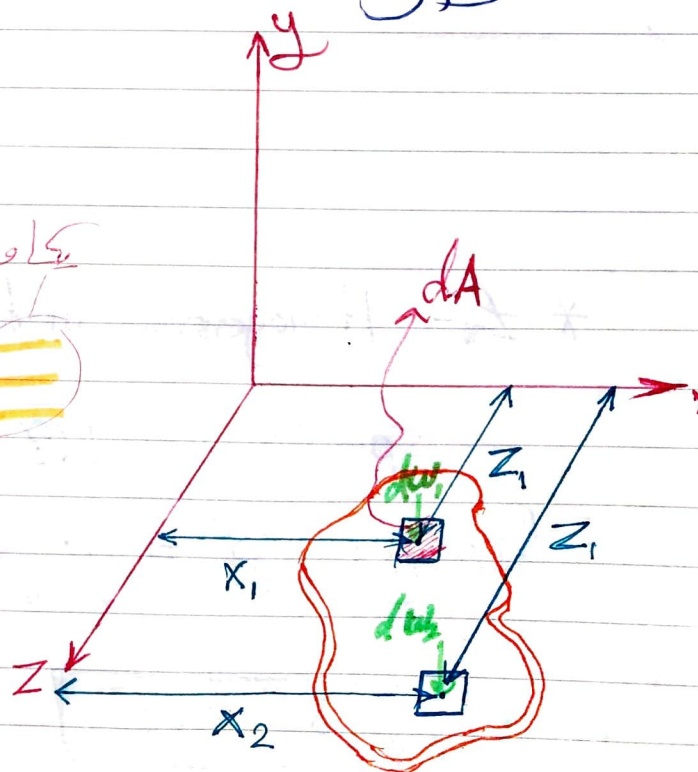 y
dA
dw₁
Z₁
Z₁
X₁
dw₂
Z
X₂